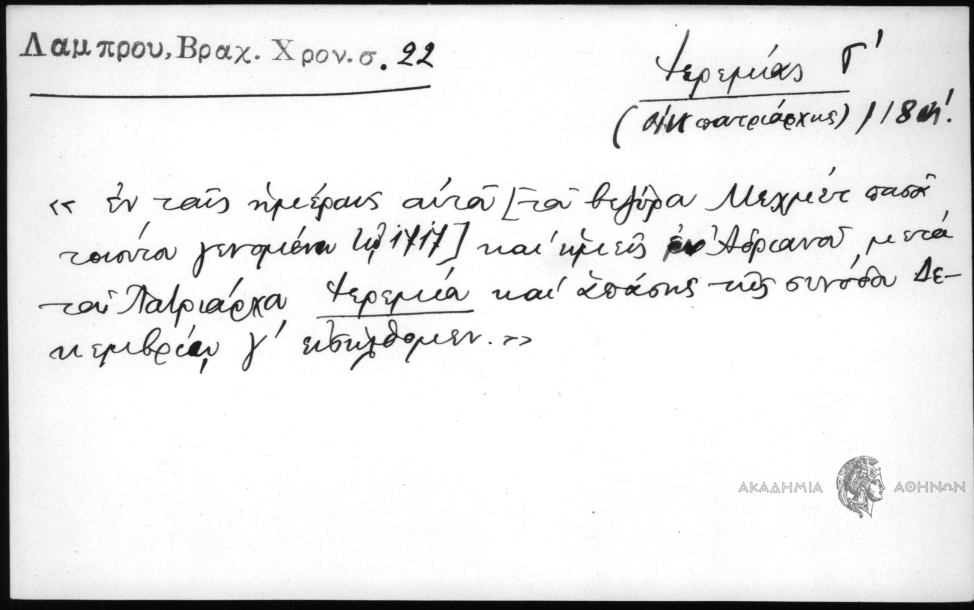 Λαμπρου, Βραχ. Χρον. σ. 22
Ἱερεμίας Γ΄
(οἰκ πατριάρχης) 1718
« ἐν ταῖς ἡμέραις αὐτοῦ [τοῦ βεζύρα Μεχμὲτ πασᾶ
τοιούτου γενομένου τῷ 1717] καὶ ἡμεῖς ἐν Ἀδριανοῦ, μετὰ
τοῦ Πατριάρχου Ἱερεμία καὶ ἁπάσης τῆς συνόδου Δε-
κεμβρίου γ΄ εἰσήλθομεν. »
ΑΚΑΔΗΜΙΑ ΑΘΗΝΩΝ